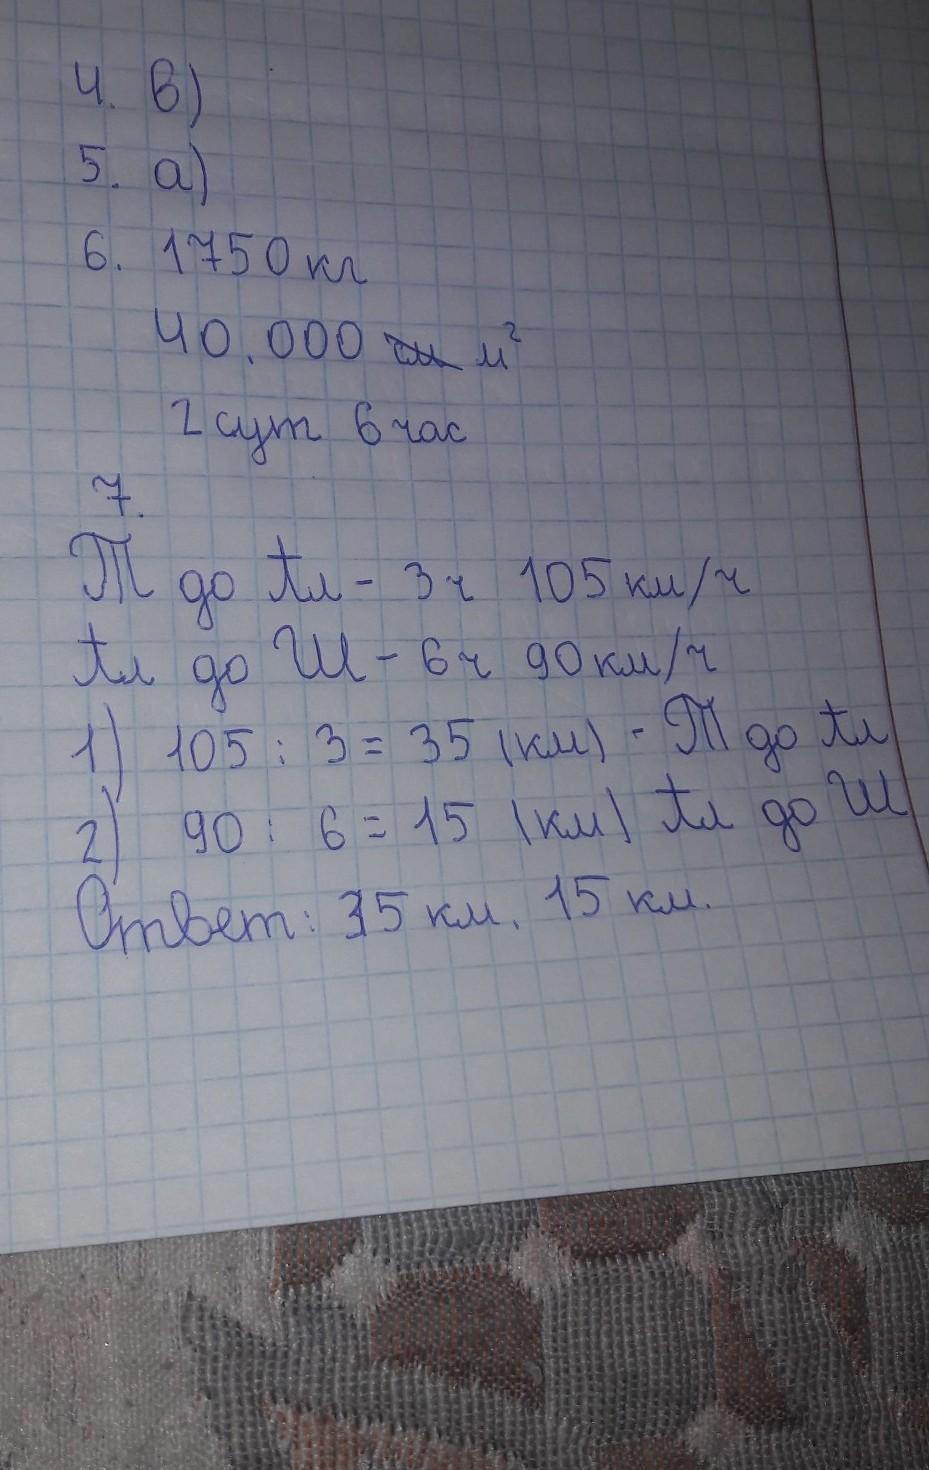 4. в)
5. а)
6. 1750 кг
40.000 м²
2 сут 6 час
7.
Т до Ал - 3 ч 105 км/ч
Ал до Ш - 6 ч 90 км/ч
1) 105 : 3 = 35 (км) - Т до Ал
2) 90 : 6 = 15 (км) Ал до Ш
Ответ: 35 км. 15 км.